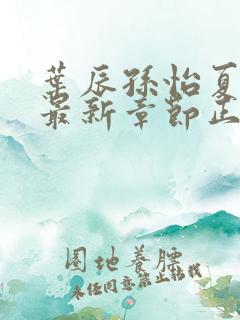 葉辰孫怡夏
最新章節正
圈地養膘
未经同意禁止转载